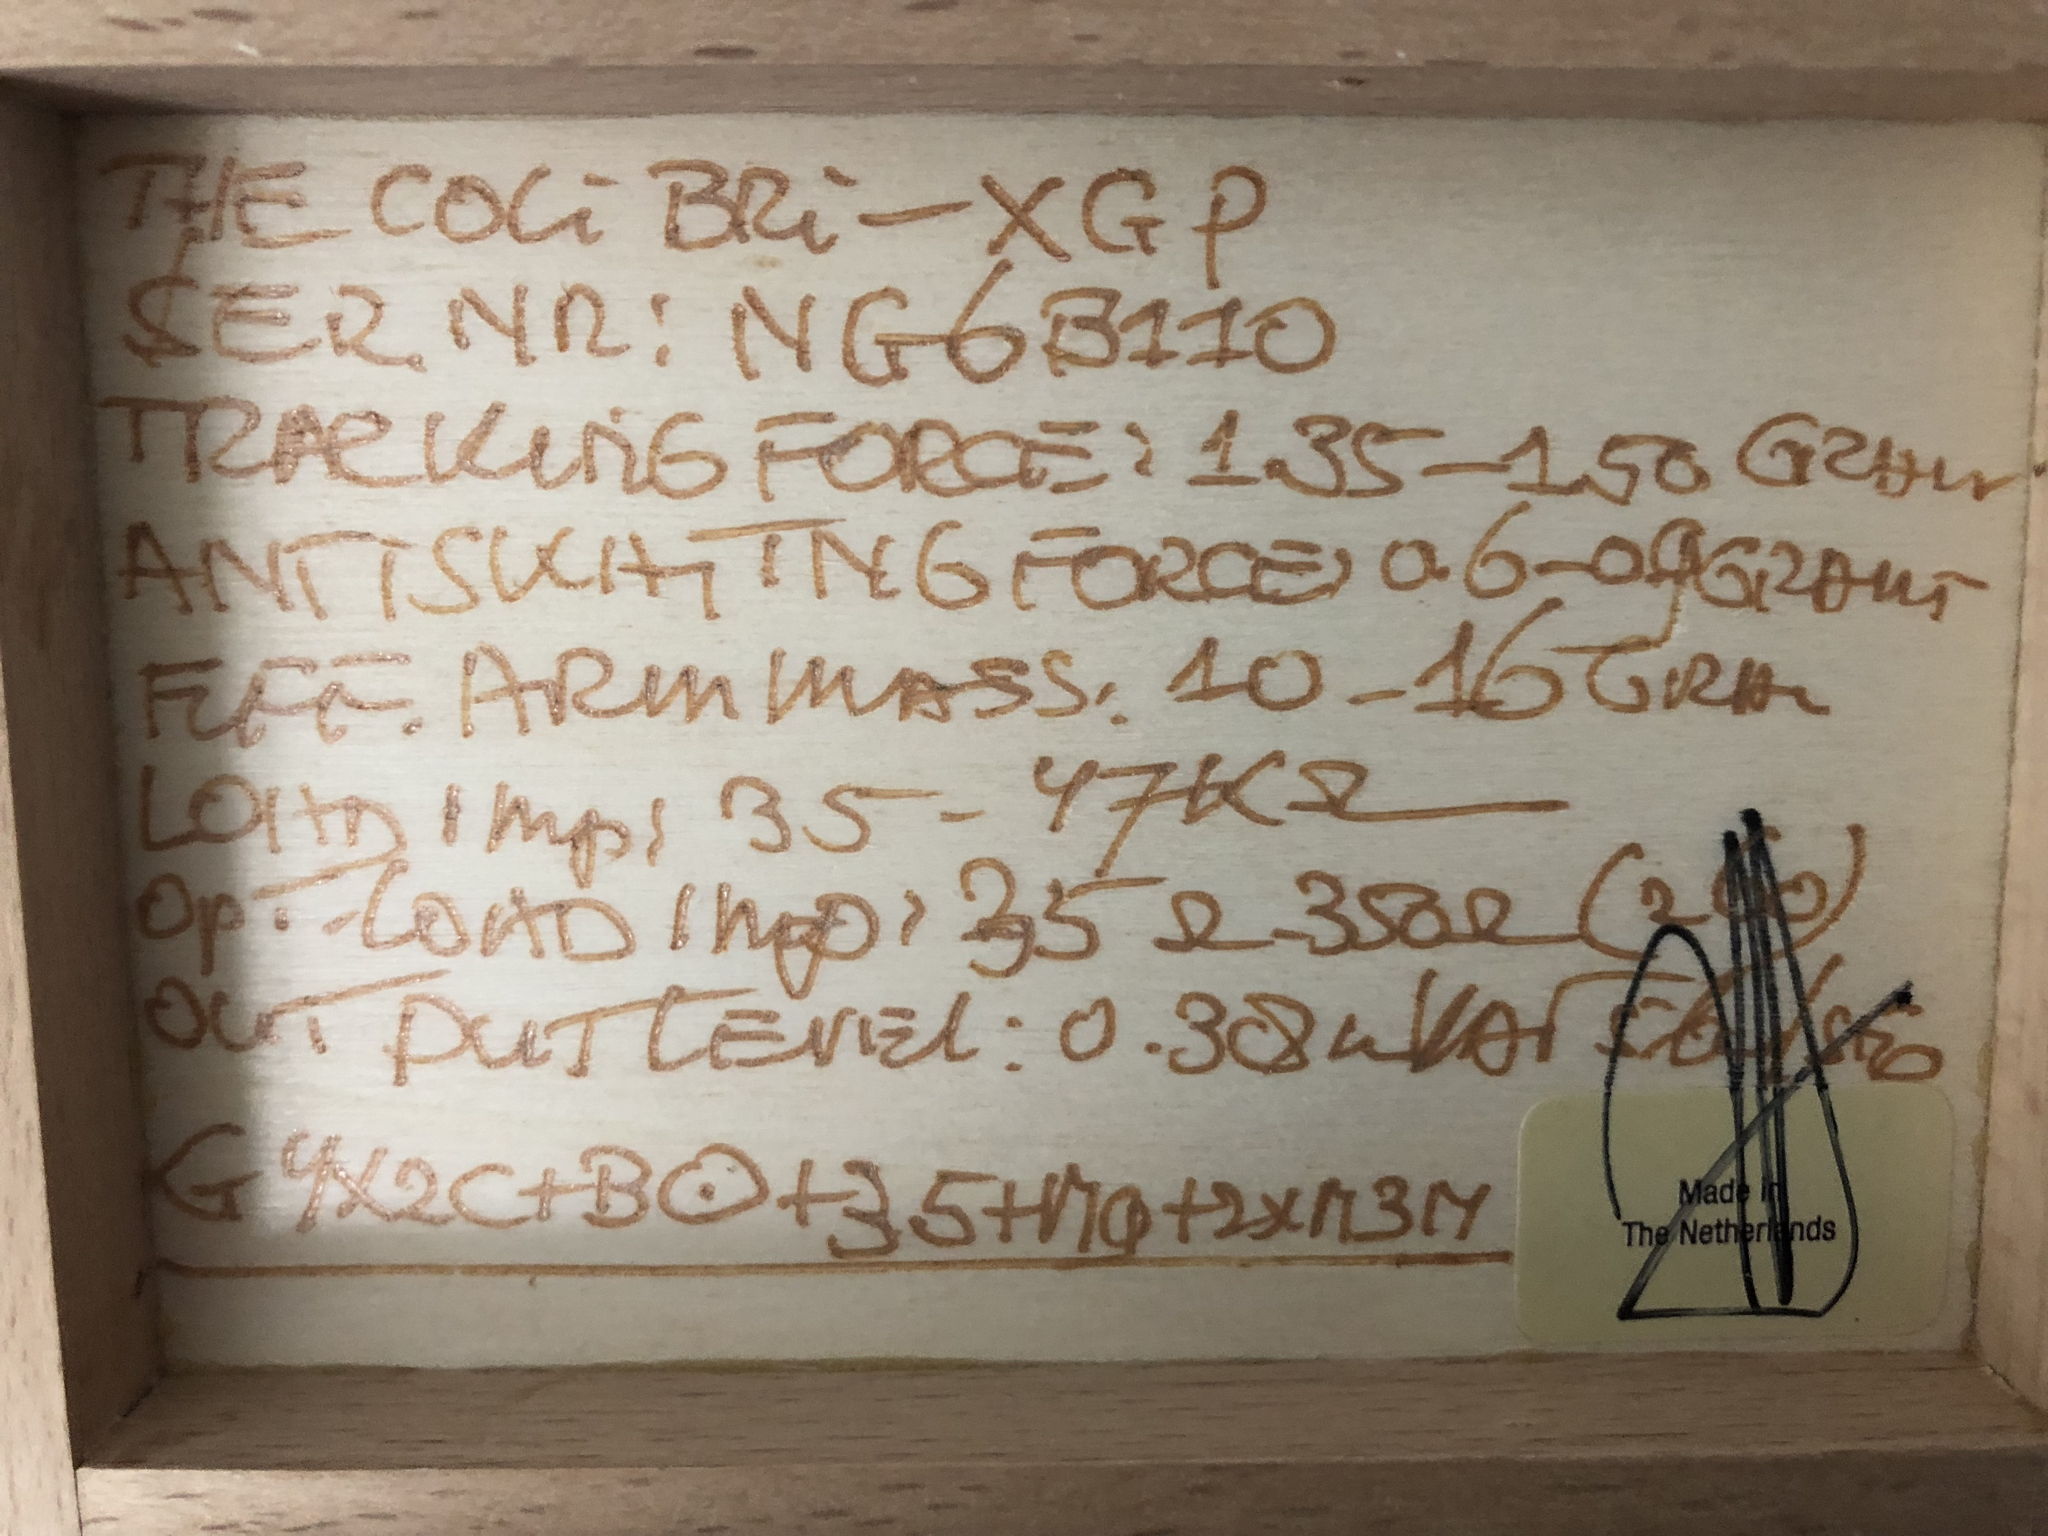 THE COLiBRi-XGP
SER. NR: NG6B110
TRACKiNG FORCE: 1.35-1.50 GRAM
ANTISKATING FORCE: 0.6-0.9 GRAMS
EFF. ARM MASS: 10-16 GRAM
LOAD IMP: 35-47KΩ
OPT-LOAD IMP: 35Ω-350Ω (200)
OUTPUT LEVEL: 0.38mV AT 5.6
G4X2C+B⊙+35+M9+2xM3M
Made in
The Netherlands